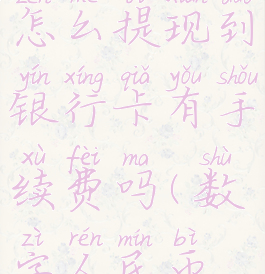 zěn me tí xiàn dào
怎么提现到
yín xíng qiǎ yǒu shǒu
银行卡有手
xù fèi ma shù
续费吗(数
zì rén mín bì
字人民币